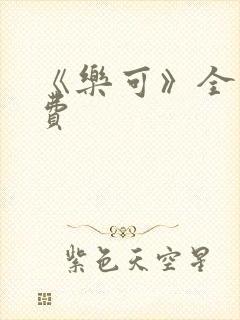 《樂可》全
費
紫色天空星